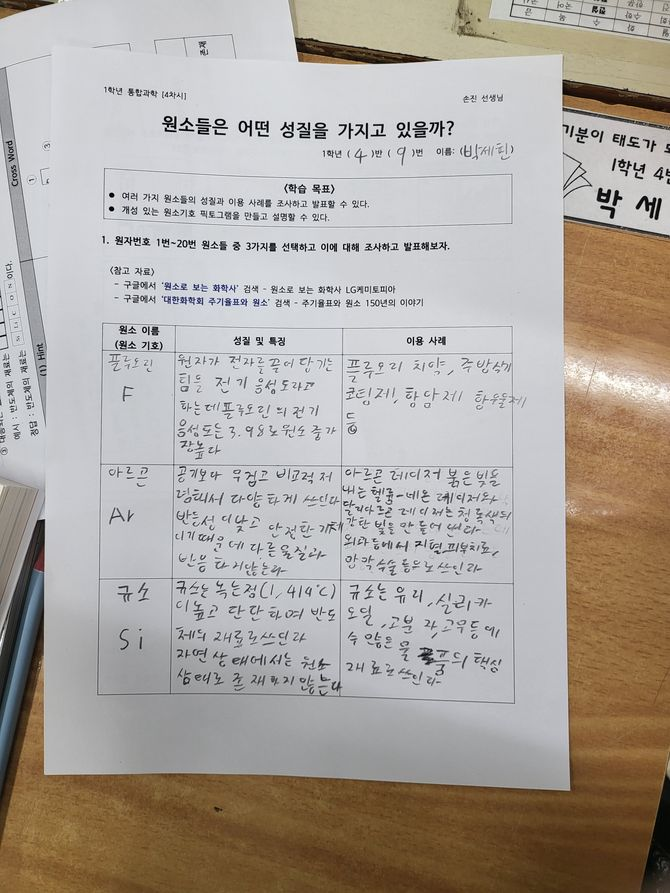 1학년 통합과학 [4차시]
손진 선생님
원소들은 어떤 성질을 가지고 있을까?
1학년 ( 4 )반 ( 9 )번 이름: (박세힌)
<학습 목표>
● 여러 가지 원소들의 성질과 이용 사례를 조사하고 발표할 수 있다.
● 개성 있는 원소기호 픽토그램을 만들고 설명할 수 있다.
1. 원자번호 1번~20번 원소들 중 3가지를 선택하고 이에 대해 조사하고 발표해보자.
<참고 자료>
- 구글에서 '원소로 보는 화학사' 검색 - 원소로 보는 화학사 LG케미토피아
- 구글에서 '대한화학회 주기율표와 원소' 검색 - 주기율표와 원소 150년의 이야기
원소 이름
(원소 기호)
성질 및 특징
이용 사례
플루오린
F
원자가 전자를 끌어 당기는
힘을 전기 음성도라고
하는데 플루오린의 전기
음성도는 3.98로 원소 중 가
장 높다
플루오리 치약, 주방식기
코팅제, 항암제, 항우울제
등
아르곤
Ar
공기보다 무겁고 비교적 저
렴해서 다양하게 쓰인다
반응성이 낮고 안전한 기체
이기 때문에 다른 물질과
반응하지 않는다
아르곤 레이저 붉은 빛을
내는 헬륨-네온 레이저와
달리 아르곤 레이저는 청록색의
강한 빛을 만들어 낸다
외과 등에서 지혈, 피부치료,
망막 수술 등으로 쓰인다
규소
Si
규소는 녹는점(1,414℃)
이 높고 단단하여 반도
체의 재료로 쓰인다
자연 상태에서는 원소
상태로 존재하지 않는다
규소는 유리, 실리카
오일, 고분자, 고무등에
수 많은 물품의 핵심
재료로 쓰인다
Cross Word
(1) Hint
기분이 태도가 되
1학년 4반
박 세